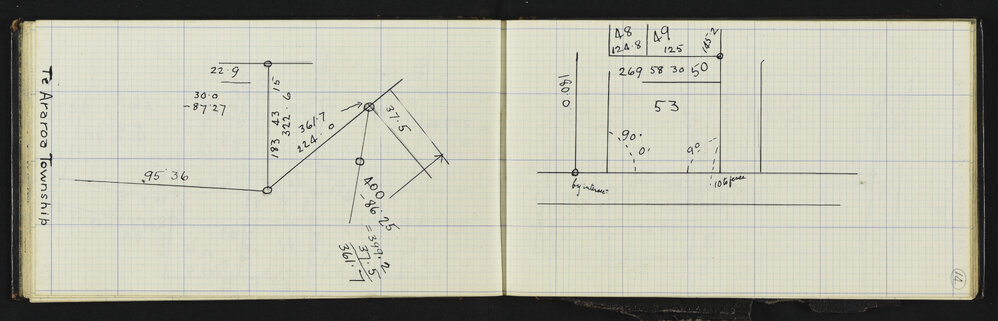 Te Araroa Township
22.9
30.0
-87.27
183 43 15
322.6
95 36
361.7
224.0
37.5
400
-86.25
=399.2
37.5
361.7
48
124.8
49
125
145.2
269 58 30
50
180.0
53
90.
0'
90
by interse
106 fence